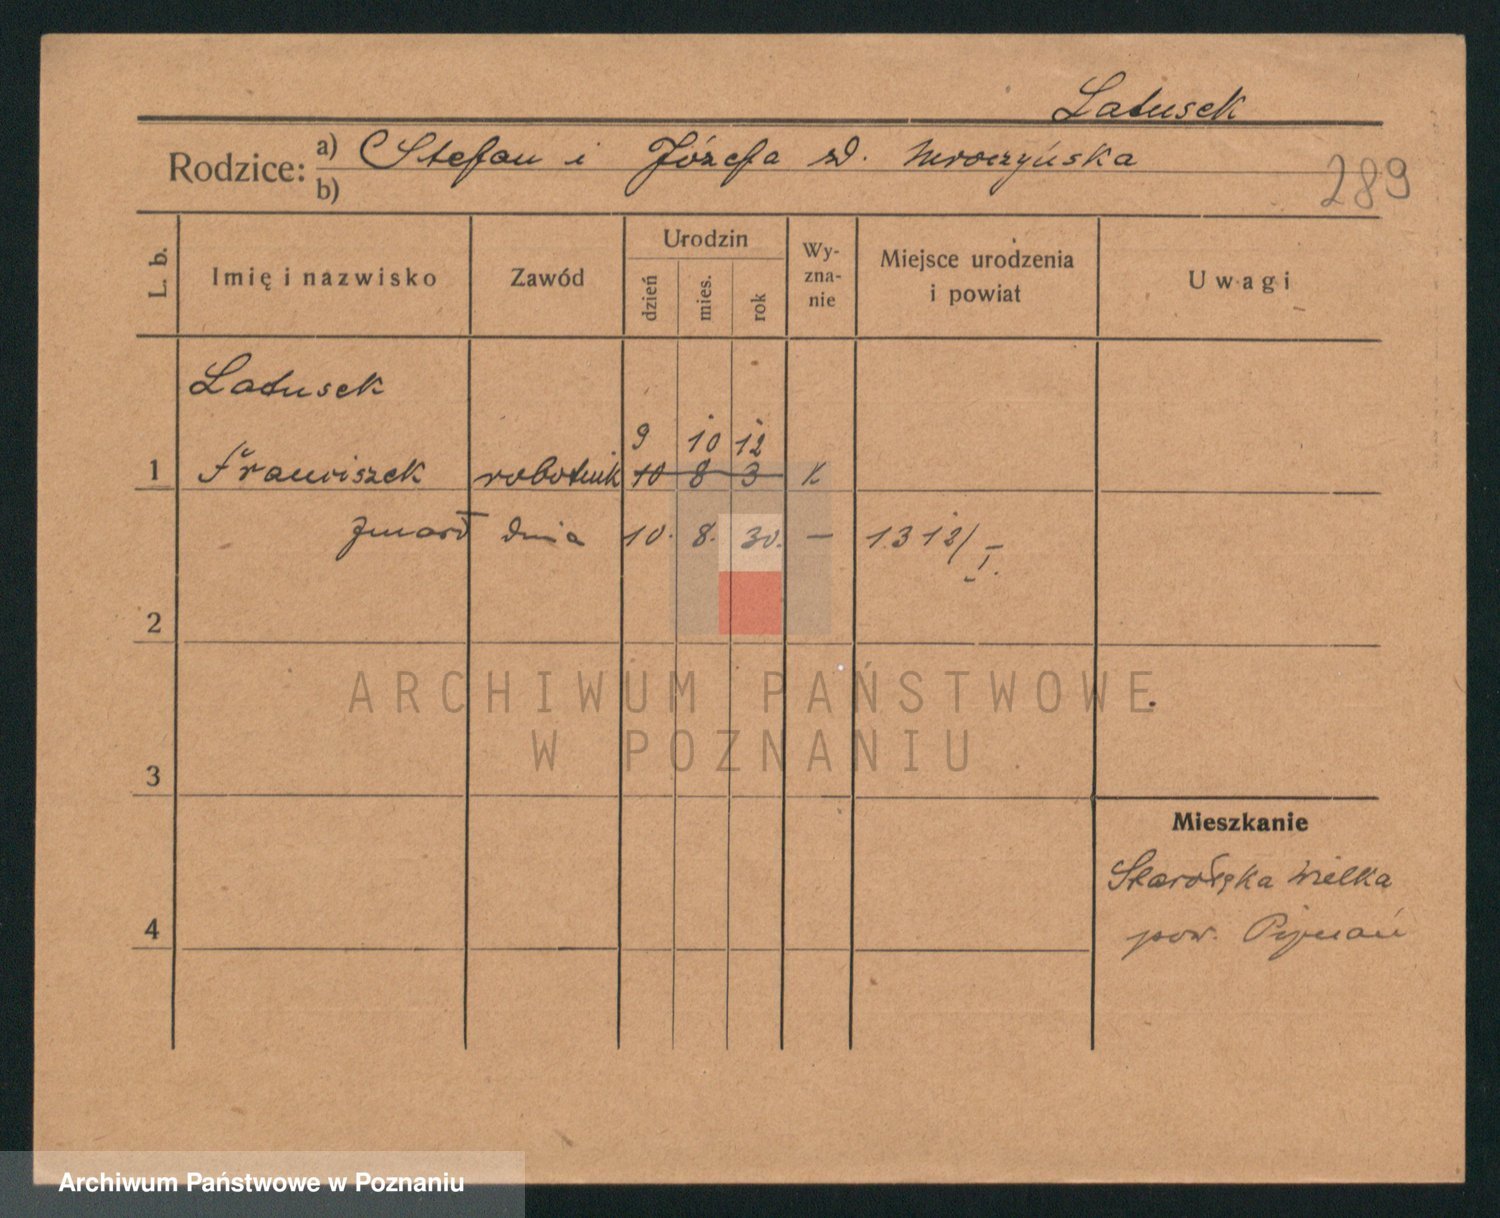 Latusek
Rodzice: a) Stefan i Józefa zd. Mroczyńska
b)
289
L. b.
Imię i nazwisko
Zawód
Urodzin
dzień
mies.
rok
Wy-
zna-
nie
Miejsce urodzenia
i powiat
Uwagi
Latusek
9 10 12
1 Franciszek robotnik 10 8 3 K
zmarł dnia 10. 8. 30. — 1312/I.
2
ARCHIWUM PAŃSTWOWE
W POZNANIU
3
Mieszkanie
Starołęka Wielka
4
pow. Poznań
Archiwum Państwowe w Poznaniu